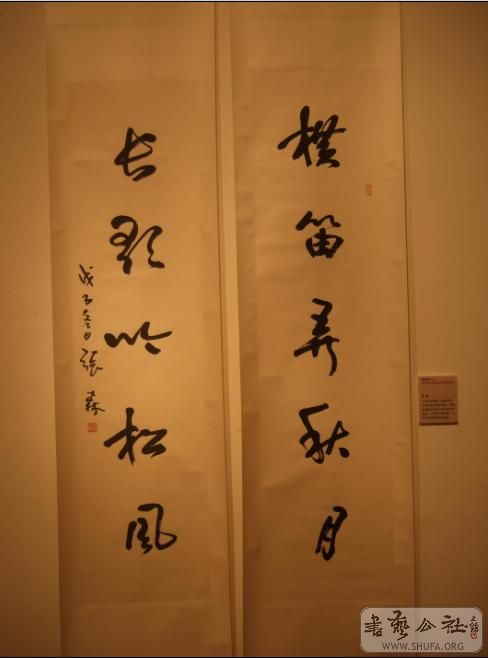 横笛弄秋月
长歌吟松风
戊子冬日 张森
書藝公社
WWW.SHUFA.ORG